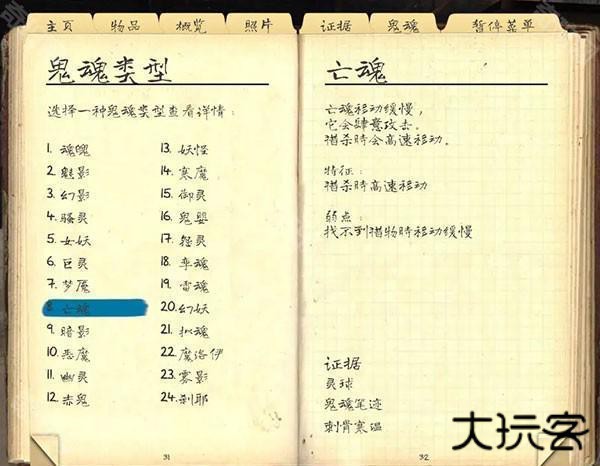 主页 物品 概览 照片 证据 鬼魂 暂停菜单
鬼魂类型
选择一种鬼魂类型查看详情：
1. 魂魄
2. 魅影
3. 幻影
4. 骚灵
5. 女妖
6. 巨灵
7. 梦魇
8. 亡魂
9. 暗影
10. 恶魔
11. 幽灵
12. 赤鬼
13. 妖怪
14. 寒魔
15. 御灵
16. 鬼婴
17. 怨灵
18. 孪魂
19. 雷魂
20. 幻妖
21. 拟魂
22. 魔洛伊
23. 雾影
24. 刹耶
31
亡魂
亡魂移动缓慢，
它会肆意攻击。
猎杀时会高速移动。
特征：
猎杀时高速移动
弱点：
找不到猎物时移动缓慢
证据
灵球
鬼魂笔迹
刺骨寒温
32
大玩客